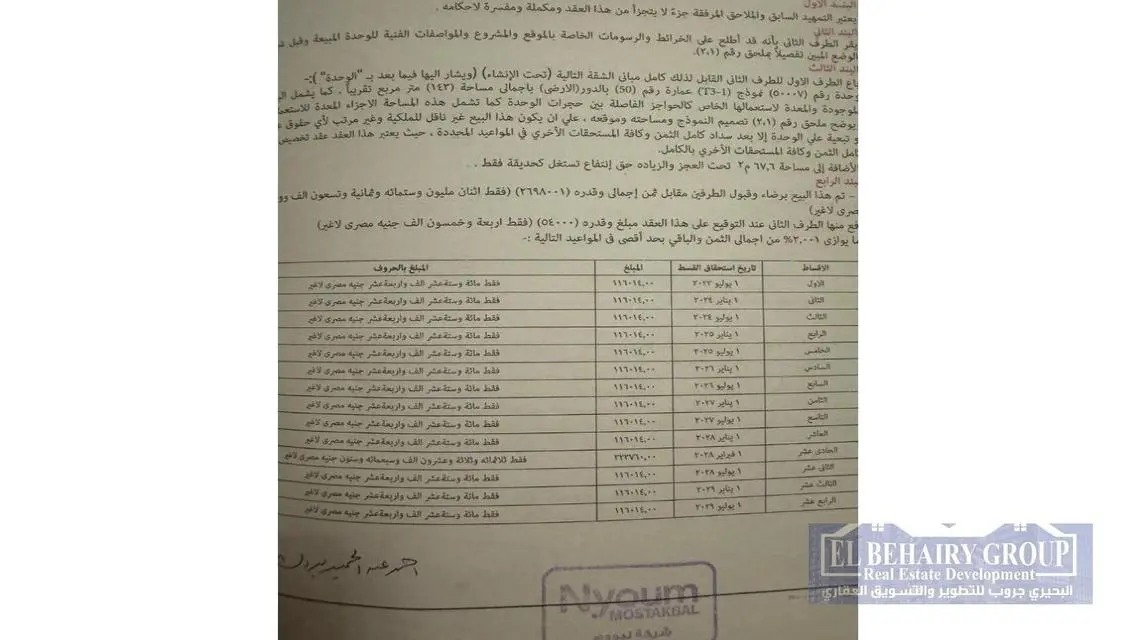 البند الاول
يعتبر التمهيد السابق والملاحق المرفقة جزء لا يتجزأ من هذا العقد ومكملة ومفسرة لاحكامه .
البند الثاني
يقر الطرف الثاني بأنه قد أطلع علي الخرائط والرسومات الخاصة بالموقع والمشروع والمواصفات الفنية للوحدة المبيعة وقبل
الوضع المبين تفصيلاً بملحق رقم (٢،١).
البند الثالث
باع الطرف الاول للطرف الثاني القابل لذلك كامل مباني الشقة التالية (تحت الإنشاء) (ويشار اليها فيما بعد بـ "الوحدة" ):-
وحدة رقم (٥٠٠٠٧) نموذج (T3-1) عمارة رقم (50) بالدور(الارضي) باجمالي مساحة (١٤٣) متر مربع تقريباً . كما يشمل
الموجودة والمعدة لاستعمالها الخاص كالحواجز الفاصلة بين حجرات الوحدة كما تشمل هذه المساحة الاجزاء المعدة للاستعمال
يوضح ملحق رقم (٢،١) تصميم النموذج ومساحته وموقعه ، علي ان يكون هذا البيع غير ناقل للملكية وغير مرتب لأي حقوق
و تبعية علي الوحدة إلا بعد سداد كامل الثمن وكافة المستحقات الأخري في المواعيد المحددة ، حيث يعتبر هذا العقد عقد تخصيص
كامل الثمن وكافة المستحقات الأخري بالكامل.
الأضافة إلى مساحة ٦٧,٦ م٢ تحت العجز والزياده حق إنتفاع تستغل كحديقة فقط . .
البند الرابع
- تم هذا البيع برضاء وقبول الطرفين مقابل ثمن إجمالى وقدره (٢٦٩٨٠٠١) (فقط اثنان مليون وستمائه وثمانية وتسعون الف
مصرى لاغير)
دفع منها الطرف الثانى عند التوقيع على هذا العقد مبلغ وقدره (٥٤٠٠٠) (فقط اربعة وخمسون الف جنيه مصرى لاغير)
ما يوازى ٢,٠٠١% من اجمالى الثمن والباقي بحد أقصى فى المواعيد التالية :-
الاقساط تاريخ استحقاق القسط المبلغ المبلغ بالحروف
الاول ١ يوليو ٢٠٢٣ ١١٦٠١٤,٠٠ فقط مائة وستة عشر الف واربعة عشر جنيه مصرى لاغير
الثانى ١ يناير ٢٠٢٤ ١١٦٠١٤,٠٠ فقط مائة وستة عشر الف واربعة عشر جنيه مصرى لاغير
الثالث ١ يوليو ٢٠٢٤ ١١٦٠١٤,٠٠ فقط مائة وستة عشر الف واربعة عشر جنيه مصرى لاغير
الرابع ١ يناير ٢٠٢٥ ١١٦٠١٤,٠٠ فقط مائة وستة عشر الف واربعة عشر جنيه مصرى لاغير
الخامس ١ يوليو ٢٠٢٥ ١١٦٠١٤,٠٠ فقط مائة وستة عشر الف واربعة عشر جنيه مصرى لاغير
السادس ١ يناير ٢٠٢٦ ١١٦٠١٤,٠٠ فقط مائة وستة عشر الف واربعة عشر جنيه مصرى لاغير
السابع ١ يوليو ٢٠٢٦ ١١٦٠١٤,٠٠ فقط مائة وستة عشر الف واربعة عشر جنيه مصرى لاغير
الثامن ١ يناير ٢٠٢٧ ١١٦٠١٤,٠٠ فقط مائة وستة عشر الف واربعة عشر جنيه مصرى لاغير
التاسع ١ يوليو ٢٠٢٧ ١١٦٠١٤,٠٠ فقط مائة وستة عشر الف واربعة عشر جنيه مصرى لاغير
العاشر ١ يناير ٢٠٢٨ ١١٦٠١٤,٠٠ فقط مائة وستة عشر الف واربعة عشر جنيه مصرى لاغير
الحادى عشر ١ فبراير ٢٠٢٨ ٣٢٣٧٦٠,٠٠ فقط ثلاثمائه وثلاثة وعشرون الف وسبعمائه وستون جنيه مصرى لاغير
الثانى عشر ١ يوليو ٢٠٢٨ ١١٦٠١٤,٠٠ فقط مائة وستة عشر الف واربعة عشر جنيه مصرى لاغير
الثالث عشر ١ يناير ٢٠٢٩ ١١٦٠١٤,٠٠ فقط مائة وستة عشر الف واربعة عشر جنيه مصرى لاغير
الرابع عشر ١ يوليو ٢٠٢٩ ١١٦٠١٤,٠٠ فقط مائة وستة عشر الف واربعة عشر جنيه مصرى لاغير
Nyoum
MOSTAKBAL
EL BEHAIRY GROUP
Real Estate Development
البحيري جروب للتطوير والتسويق العقاري